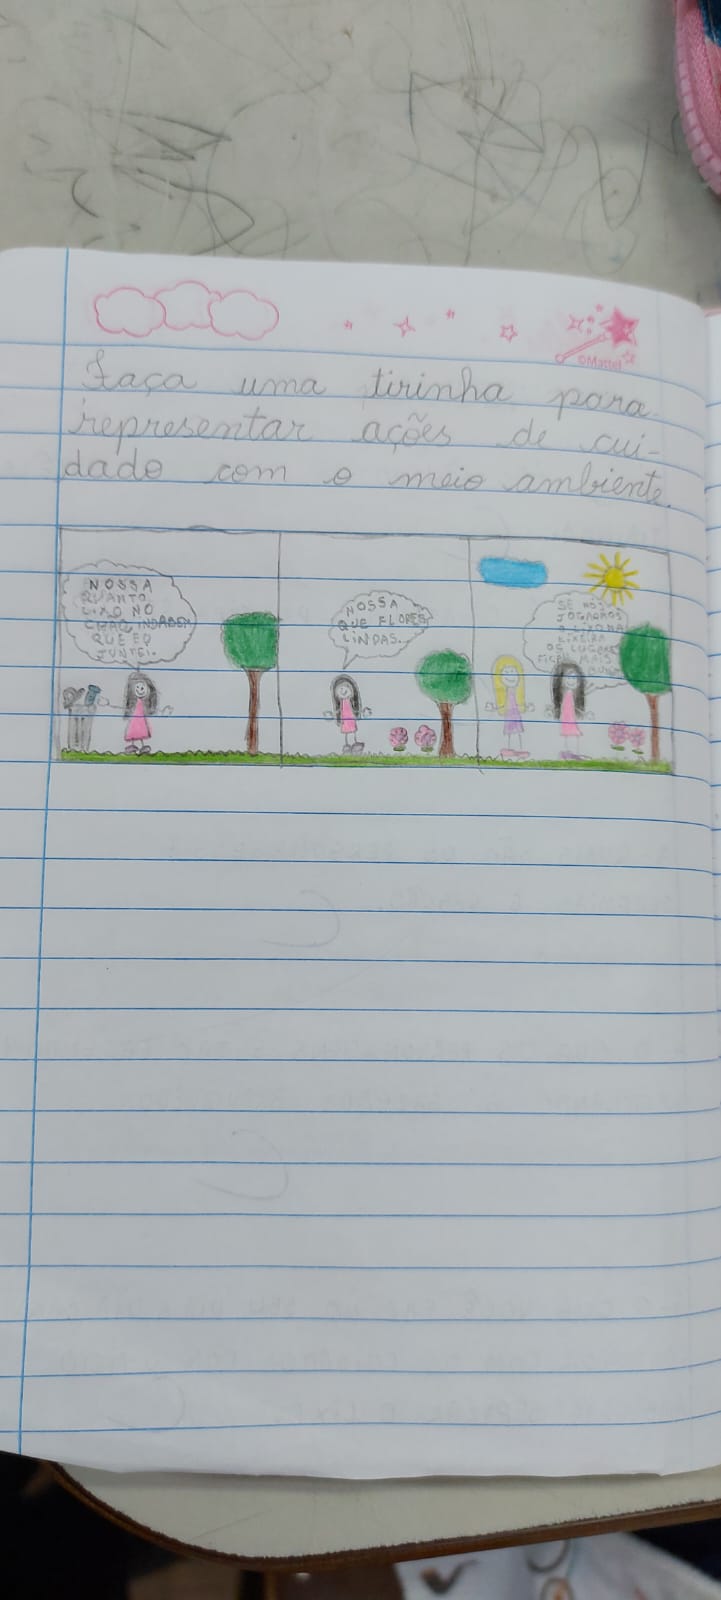 ©Mattel
Faça uma tirinha para
representar ações de cui-
dado com o meio ambiente.
NOSSA
QUANTO
LIXO NO
CHÃO, INDABEM
QUE EU
JUNTEI.
NOSSA
QUE FLORES
LINDAS.
SE NOS
JOGARMOS
O LIXO NA
LIXEIRA
OS LUGARES
FICAM MAIS